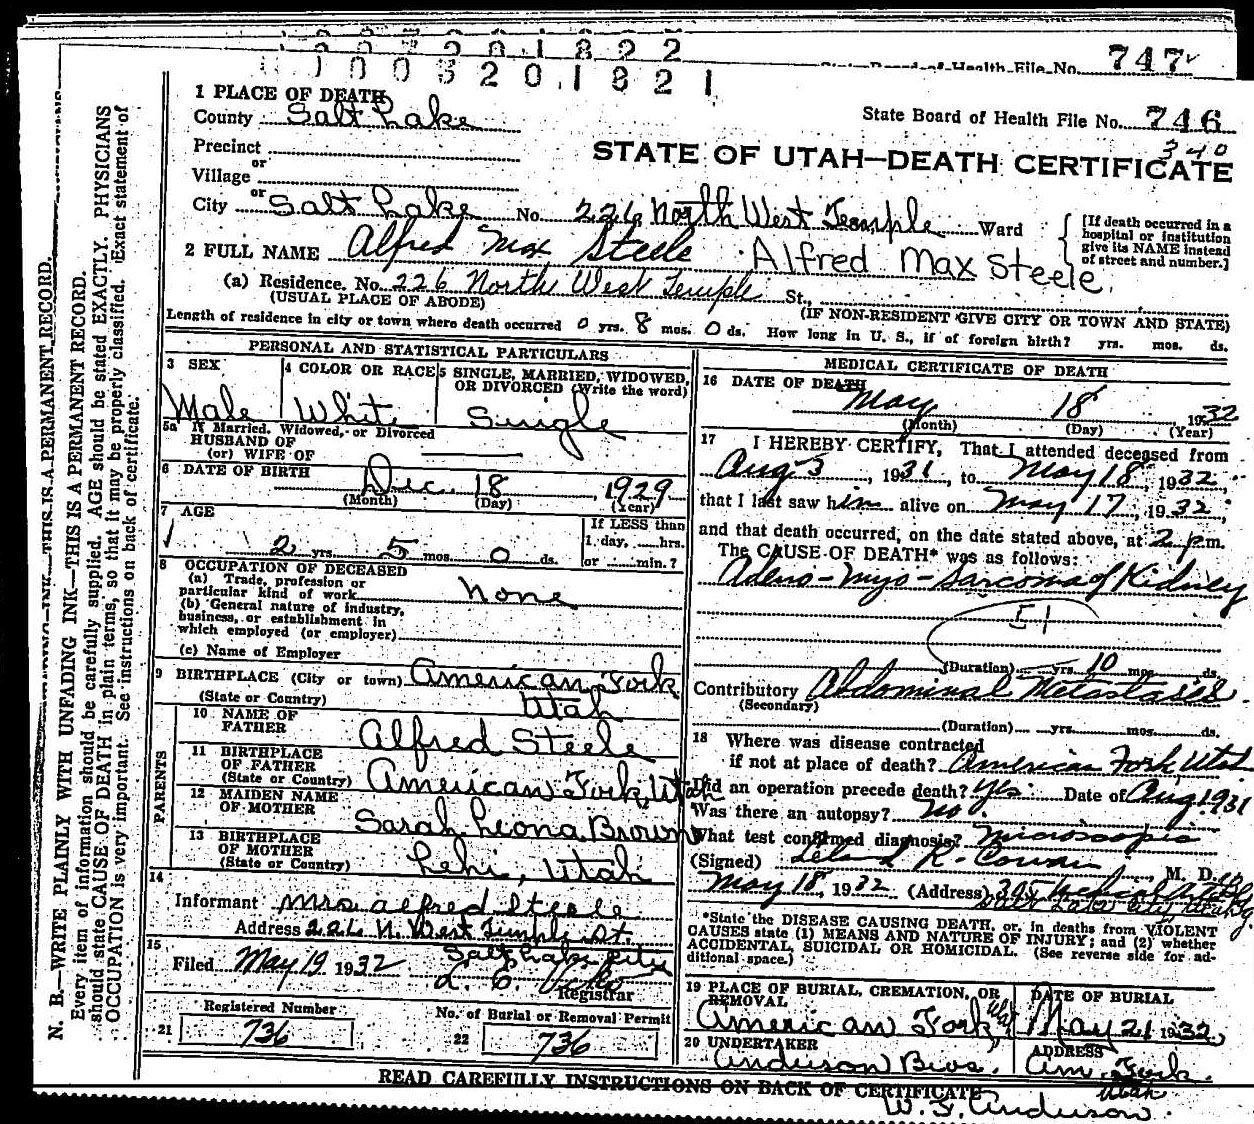 1003201822
747
State Board of Health File No.
1003201821
1 PLACE OF DEATH
County Salt Lake
State Board of Health File No. 746
340
Precinct
or
Village
STATE OF UTAH—DEATH CERTIFICATE
or
City Salt Lake No. 226 North West Temple Ward
[If death occurred in a hospital or institution give its NAME instead of street and number.]
2 FULL NAME Alfred Max Steele Alfred Max Steele
(a) Residence. No. 226 North West Temple St.,
(USUAL PLACE OF ABODE) (IF NON-RESIDENT GIVE CITY OR TOWN AND STATE)
Length of residence in city or town where death occurred 0 yrs. 8 mos. 0 ds. How long in U. S., if of foreign birth? yrs. mos. ds.
PERSONAL AND STATISTICAL PARTICULARS
3 SEX 4 COLOR OR RACE 5 SINGLE, MARRIED, WIDOWED, OR DIVORCED (Write the word)
Male White Single
5a If Married, Widowed, or Divorced
HUSBAND OF
(or) WIFE OF
6 DATE OF BIRTH
Dec. 18, 1929
(Month) (Day) (Year)
7 AGE
2 yrs. 5 mos. 0 ds.
If LESS than
1 day, hrs.
or min.?
8 OCCUPATION OF DECEASED
(a) Trade, profession or
particular kind of work None
(b) General nature of industry,
business, or establishment in
which employed (or employer)
(c) Name of Employer
9 BIRTHPLACE (City or town) American Fork
(State or Country) Utah
PARENTS
10 NAME OF
FATHER Alfred Steele
11 BIRTHPLACE
OF FATHER
(State or Country) American Fork, Utah
12 MAIDEN NAME
OF MOTHER Sarah Leona Brown
13 BIRTHPLACE
OF MOTHER
(State or Country) Lehi, Utah
14
Informant Mrs. Alfred Steele
Address 226 N. West Temple St.
Salt Lake City
15
Filed May 19 1932
Registrar
Registered Number No. of Burial or Removal Permit
21 736 22 736
MEDICAL CERTIFICATE OF DEATH
16 DATE OF DEATH
May 18 1932
(Month) (Day) (Year)
17 I HEREBY CERTIFY, That I attended deceased from
Aug 3, 1931, to May 18, 1932,
that I last saw him alive on May 17, 1932,
and that death occurred, on the date stated above, at 2 p.m.
The CAUSE OF DEATH* was as follows:
Adeno-Myo-Sarcoma of Kidney
51
(Duration) yrs. 10 mos. ds.
Contributory Abdominal Metastases.
(Secondary)
(Duration) yrs. mos. ds.
18 Where was disease contracted
if not at place of death? American Fork, Utah
Did an operation precede death? Yes Date of Aug 1931
Was there an autopsy? No.
What test confirmed diagnosis? Microscopic
(Signed) Leland R. Cowan, M. D.
May 18, 1932 (Address) 305 Medical Arts Bldg
Salt Lake City, Utah
*State the DISEASE CAUSING DEATH, or, in deaths from VIOLENT
CAUSES state (1) MEANS AND NATURE OF INJURY; and (2) whether
ACCIDENTAL, SUICIDAL OR HOMICIDAL. (See reverse side for ad-
ditional space.)
19 PLACE OF BURIAL, CREMATION, OR REMOVAL DATE OF BURIAL
American Fork, Utah May 21 1932,
20 UNDERTAKER ADDRESS
Anderson Bros. Am. Fork.
Utah
READ CAREFULLY INSTRUCTIONS ON BACK OF CERTIFICATE
W. F. Anderson.
N. B.—WRITE PLAINLY WITH UNFADING INK—THIS IS A PERMANENT RECORD.
Every item of information should be carefully supplied. AGE should be stated EXACTLY. PHYSICIANS
should state CAUSE OF DEATH in plain terms, so that it may be properly classified. Exact statement of
OCCUPATION is very important. See instructions on back of certificate.